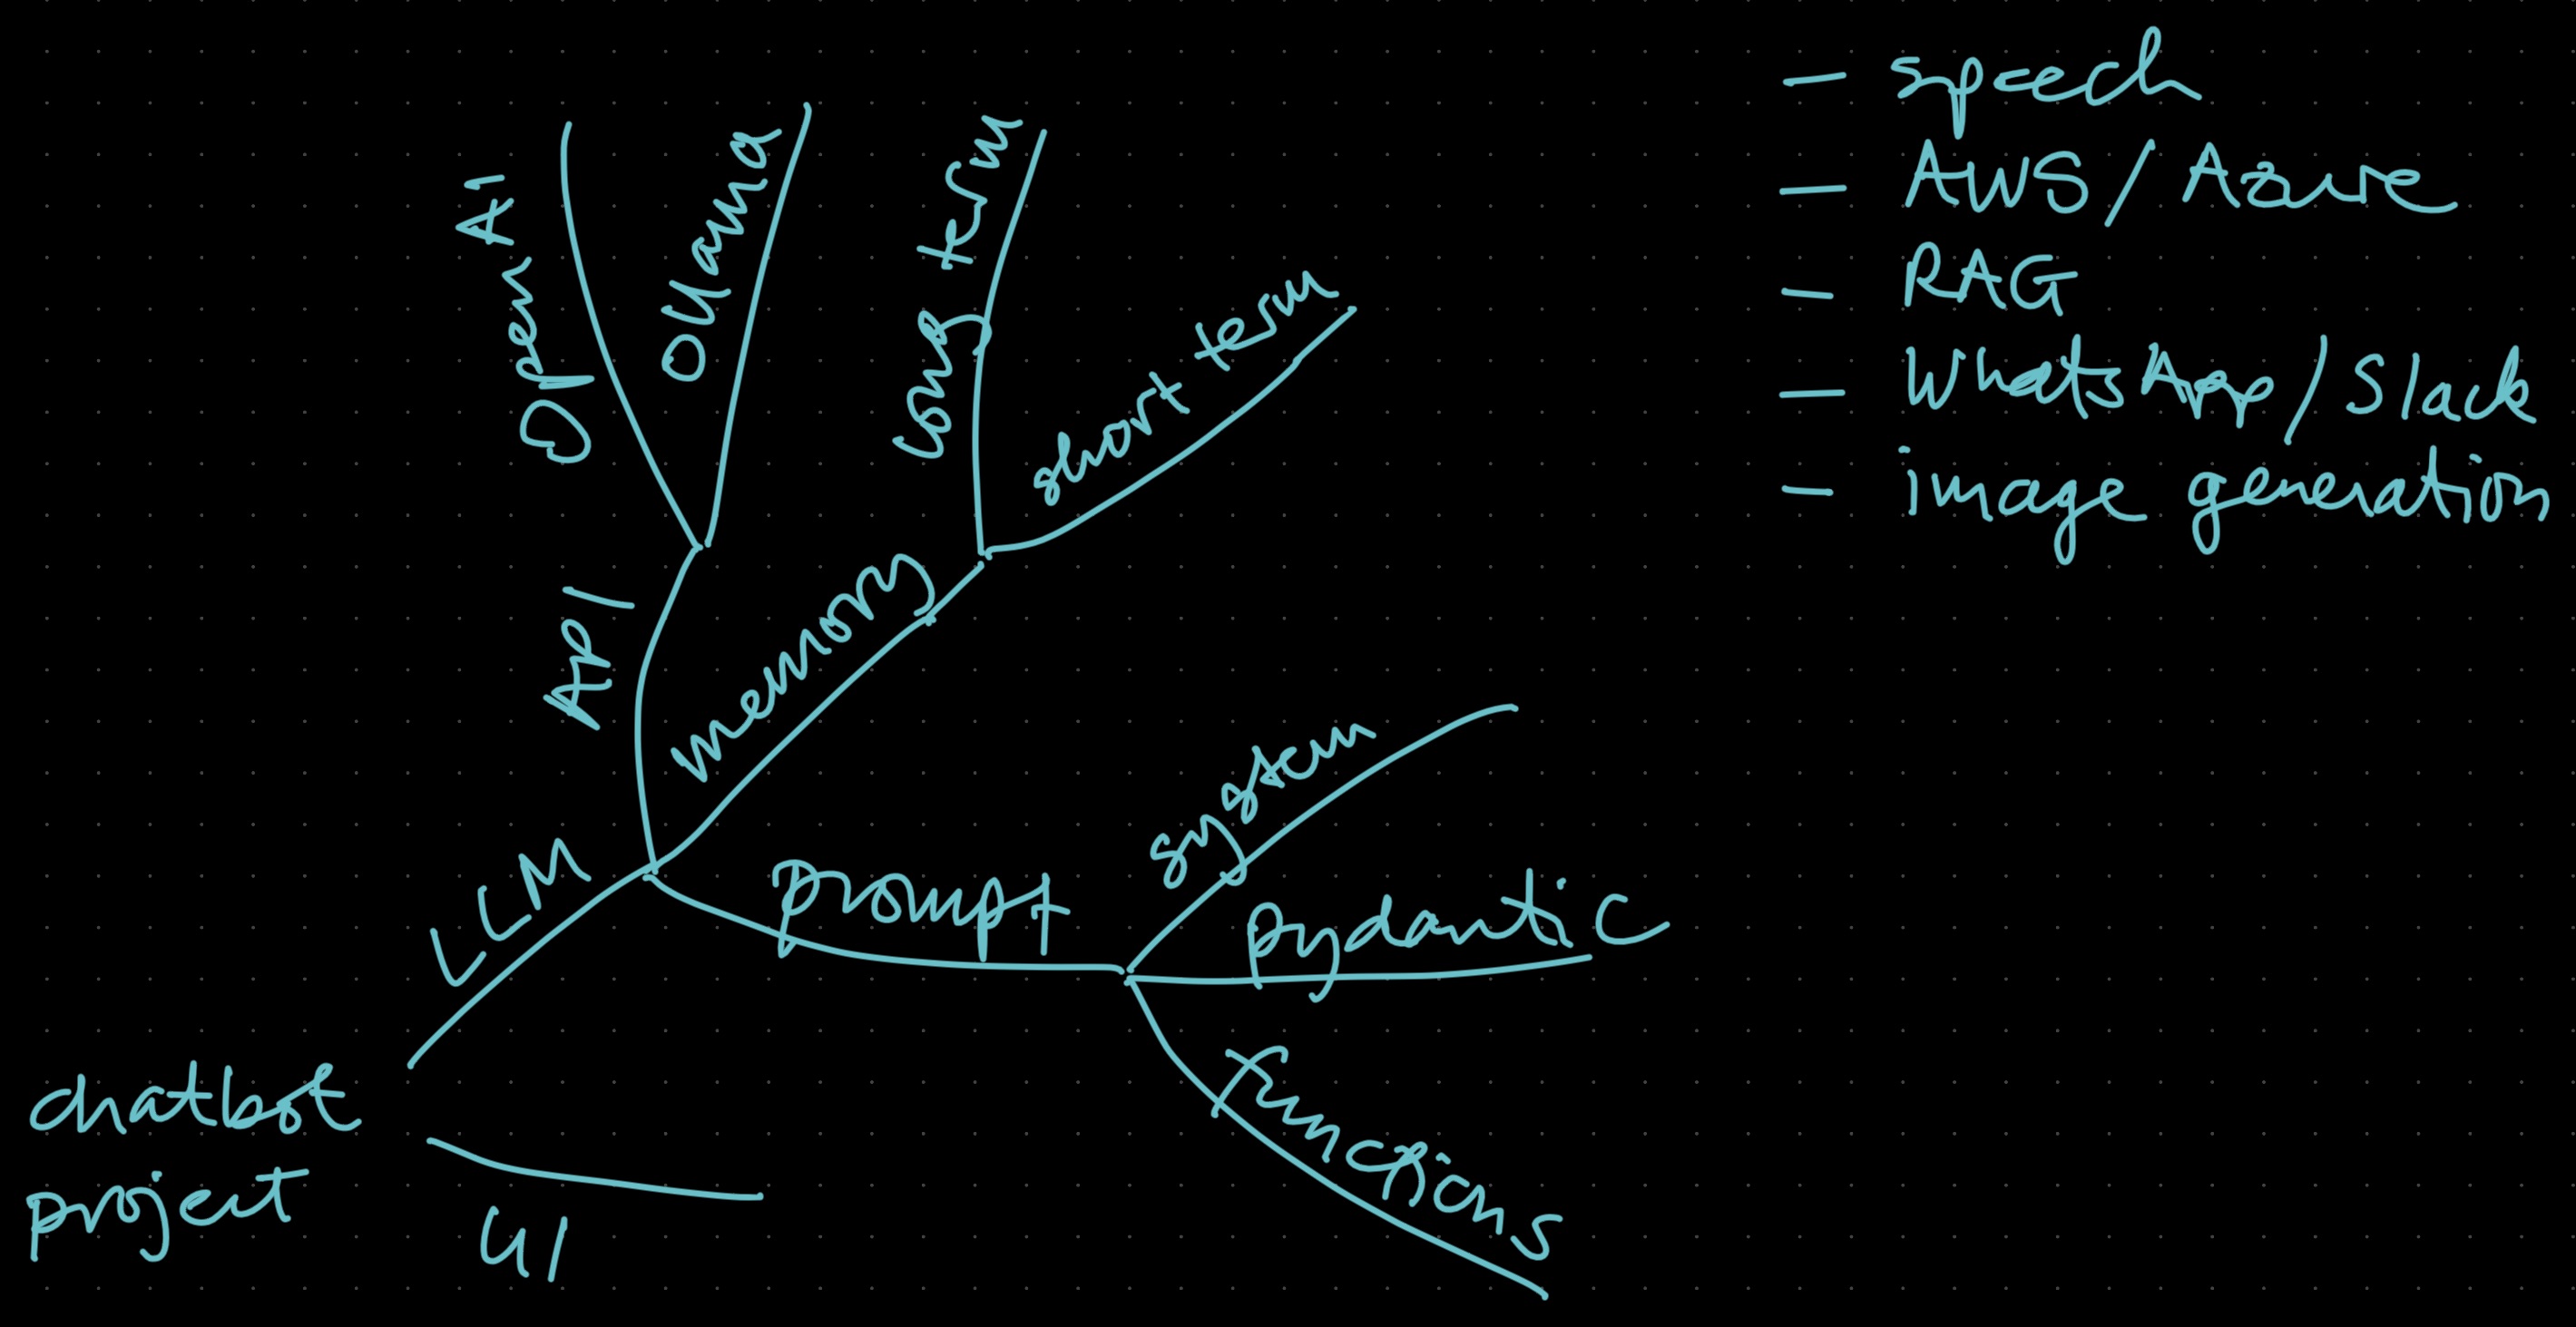 chatbot
project
LLM
API
Open AI
Ollama
memory
long term
short term
prompt
system
pydantic
functions
UI
- speech
- AWS/Azure
- RAG
- WhatsApp/Slack
- image generation